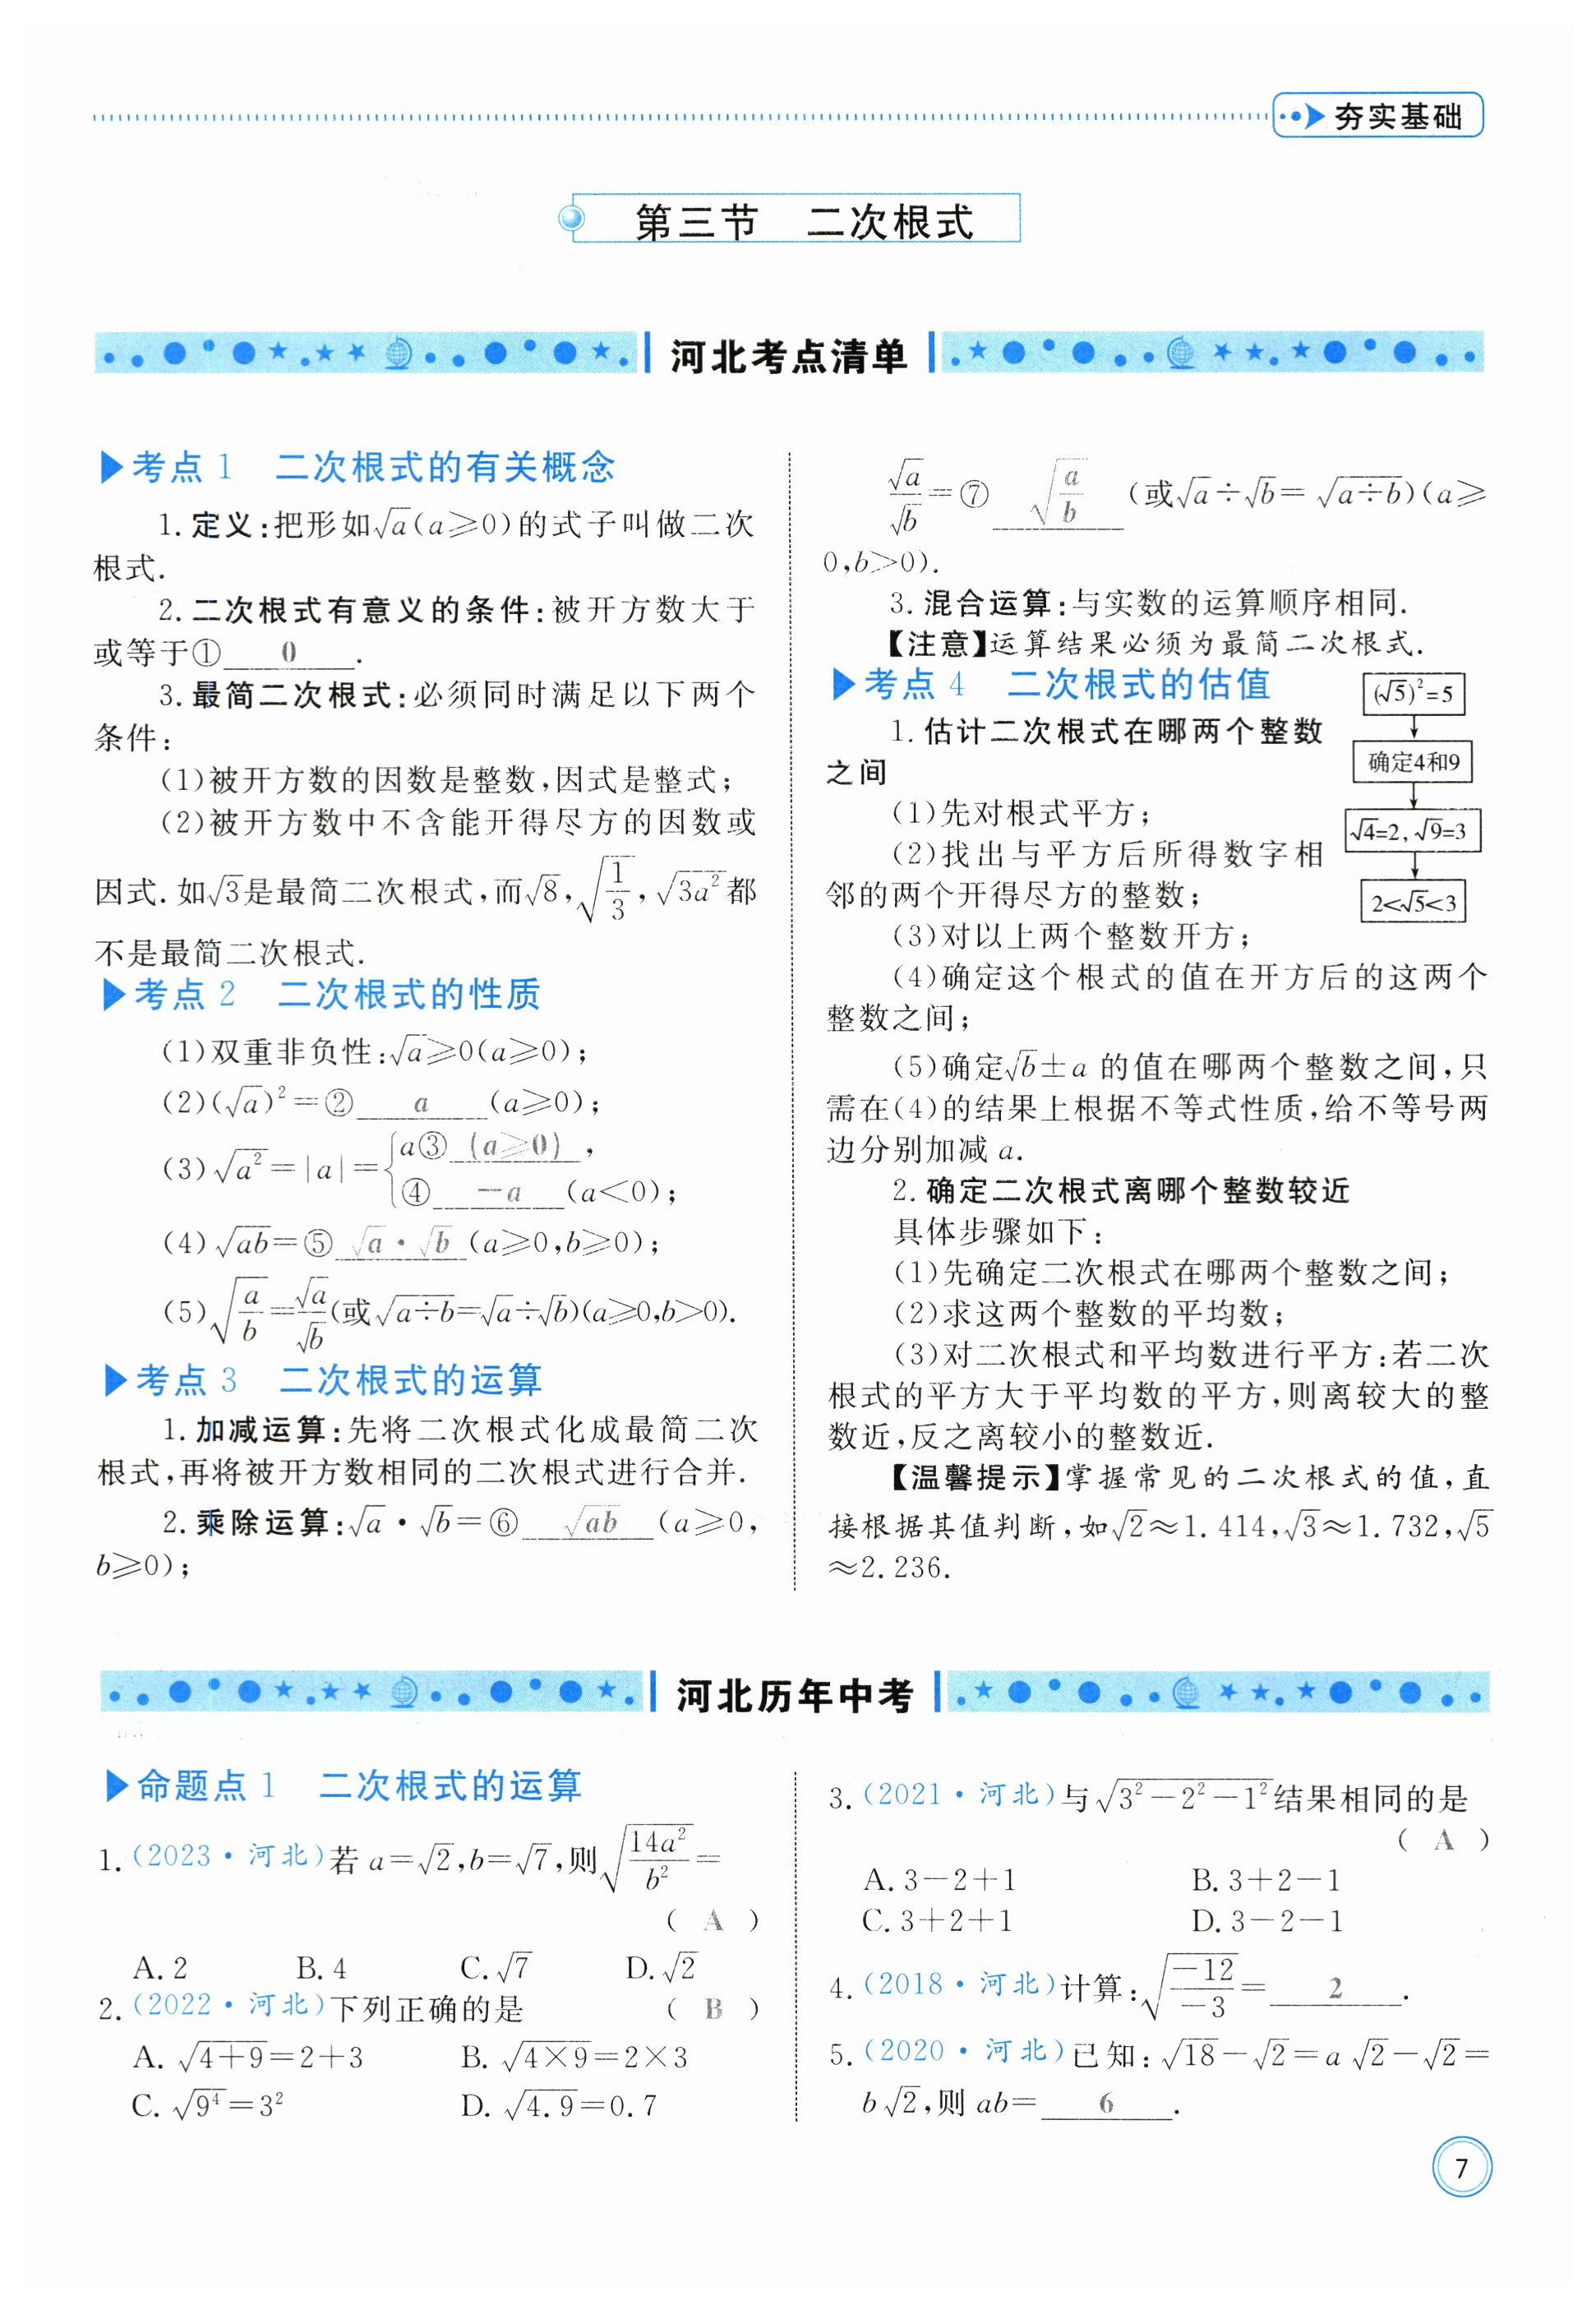 夯实基础
第三节 二次根式
河北考点清单
考点1 二次根式的有关概念
1.定义:把形如√a(a≥0)的式子叫做二次
根式.
2.二次根式有意义的条件:被开方数大于
或等于① 0 .
3.最简二次根式:必须同时满足以下两个
条件:
(1)被开方数的因数是整数,因式是整式;
(2)被开方数中不含能开得尽方的因数或
因式.如√3是最简二次根式,而√8,√(1/3),√(3a²)都
不是最简二次根式.
考点2 二次根式的性质
(1)双重非负性:√a≥0(a≥0);
(2)(√a)²=② a (a≥0);
(3)√(a²)=|a|={a③ (a≥0) ,
④ -a (a<0);
(4)√(ab)=⑤ √a·√b (a≥0,b≥0);
(5)√(a/b)=√a/√b(或√(a÷b)=√a÷√b)(a≥0,b>0).
考点3 二次根式的运算
1.加减运算:先将二次根式化成最简二次
根式,再将被开方数相同的二次根式进行合并.
2.乘除运算:√a·√b=⑥ √(ab) (a≥0,
b≥0);
√a/√b=⑦ √(a/b) (或√a÷√b=√(a÷b))(a≥
0,b>0).
3.混合运算:与实数的运算顺序相同.
【注意】运算结果必须为最简二次根式.
考点4 二次根式的估值
1.估计二次根式在哪两个整数
之间
(1)先对根式平方;
(2)找出与平方后所得数字相
邻的两个开得尽方的整数;
(3)对以上两个整数开方;
(4)确定这个根式的值在开方后的这两个
整数之间;
(5)确定√b±a的值在哪两个整数之间,只
需在(4)的结果上根据不等式性质,给不等号两
边分别加减a.
(√5)²=5
确定4和9
√4=2,√9=3
2<√5<3
2.确定二次根式离哪个整数较近
具体步骤如下:
(1)先确定二次根式在哪两个整数之间;
(2)求这两个整数的平均数;
(3)对二次根式和平均数进行平方:若二次
根式的平方大于平均数的平方,则离较大的整
数近,反之离较小的整数近.
【温馨提示】掌握常见的二次根式的值,直
接根据其值判断,如√2≈1.414,√3≈1.732,√5
≈2.236.
河北历年中考
命题点1 二次根式的运算
1.(2023·河北)若a=√2,b=√7,则√(14a²/b²)=
( A )
A.2 B.4 C.√7 D.√2
2.(2022·河北)下列正确的是 ( B )
A.√(4+9)=2+3 B.√(4×9)=2×3
C.√(9⁴)=3² D.√(4.9)=0.7
3.(2021·河北)与√(3²-2²-1²)结果相同的是
( A )
A.3-2+1 B.3+2-1
C.3+2+1 D.3-2-1
4.(2018·河北)计算:√(-12/-3)= 2 .
5.(2020·河北)已知:√18-√2=a√2-√2=
b√2,则ab= 6 .
7